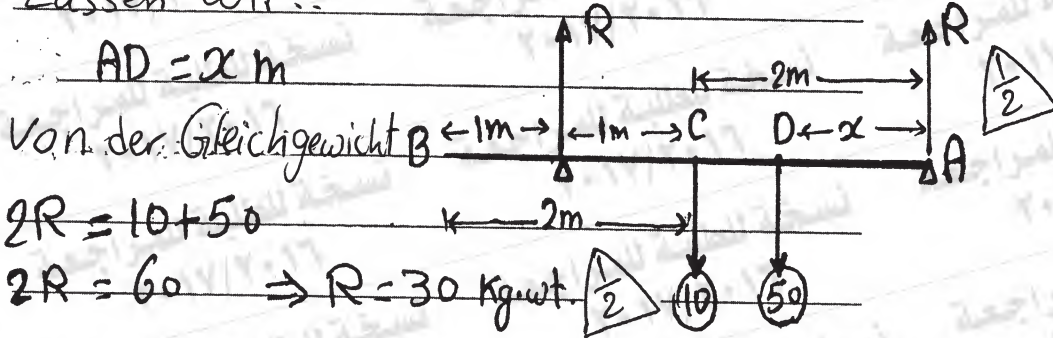 Lassen wir..
AD = x m
Von der Gleichgewicht
2R = 10+50
2R = 60 ⇒ R = 30 Kg.wt. 1/2
R R
2m 1/2
B 1m 1m C D x A
2m
10 50